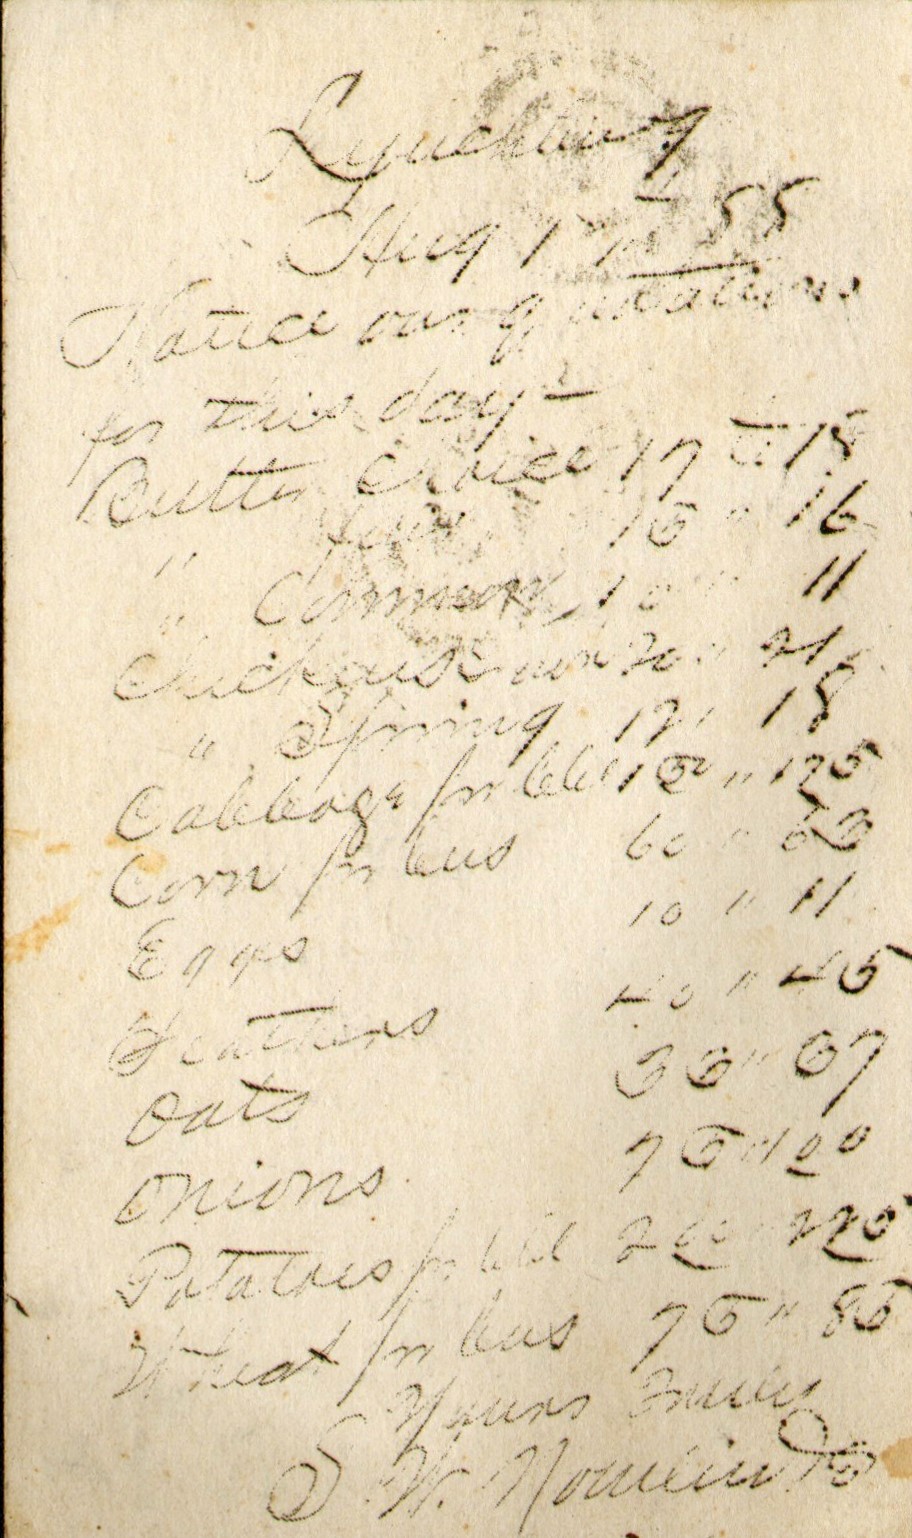 Lynchburg
Aug 1st 1885
Notice our quotations
for this day—
Butter Choice 17 to 18
" fair 15 " 16
" Common 10 " 11
Chickens 20 " 21
" Spring 12 " 18
Cabbage pr bbl 150 " 175
Corn pr bus 60 " 63
Eggs 10 " 11
Feathers 40 " 45
Oats 35 " 37
Onions 75 " 100
Potatoes pr bbl 200 " 225
Wheat pr bus 75 " 85
Yours Truly
S. W.